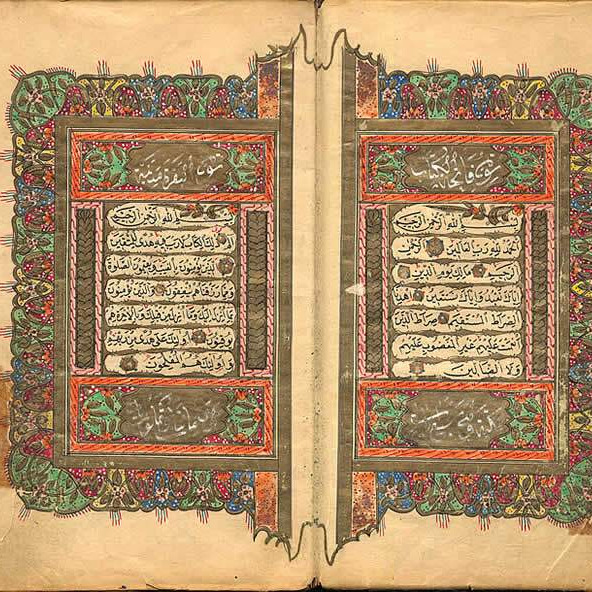 سورة فاتحة الكتاب
بسم الله الرحمن الرحيم
الحمد لله رب العالمين الرحمن
الرحيم مالك يوم الدين
اياك نعبد واياك نستعين اهدنا
الصراط المستقيم صراط الذين
انعمت عليهم غير المغضوب عليهم
ولا الضالين
سورة البقرة مدنية
بسم الله الرحمن الرحيم
الم ذلك الكتاب لا ريب فيه هدى للمتقين
الذين يؤمنون بالغيب ويقيمون الصلاة
ومما رزقناهم ينفقون والذين يؤمنون
بما انزل اليك وما انزل من قبلك وبالاخرة هم
يوقنون اولئك على هدى من ربهم
واولئك هم المفلحون